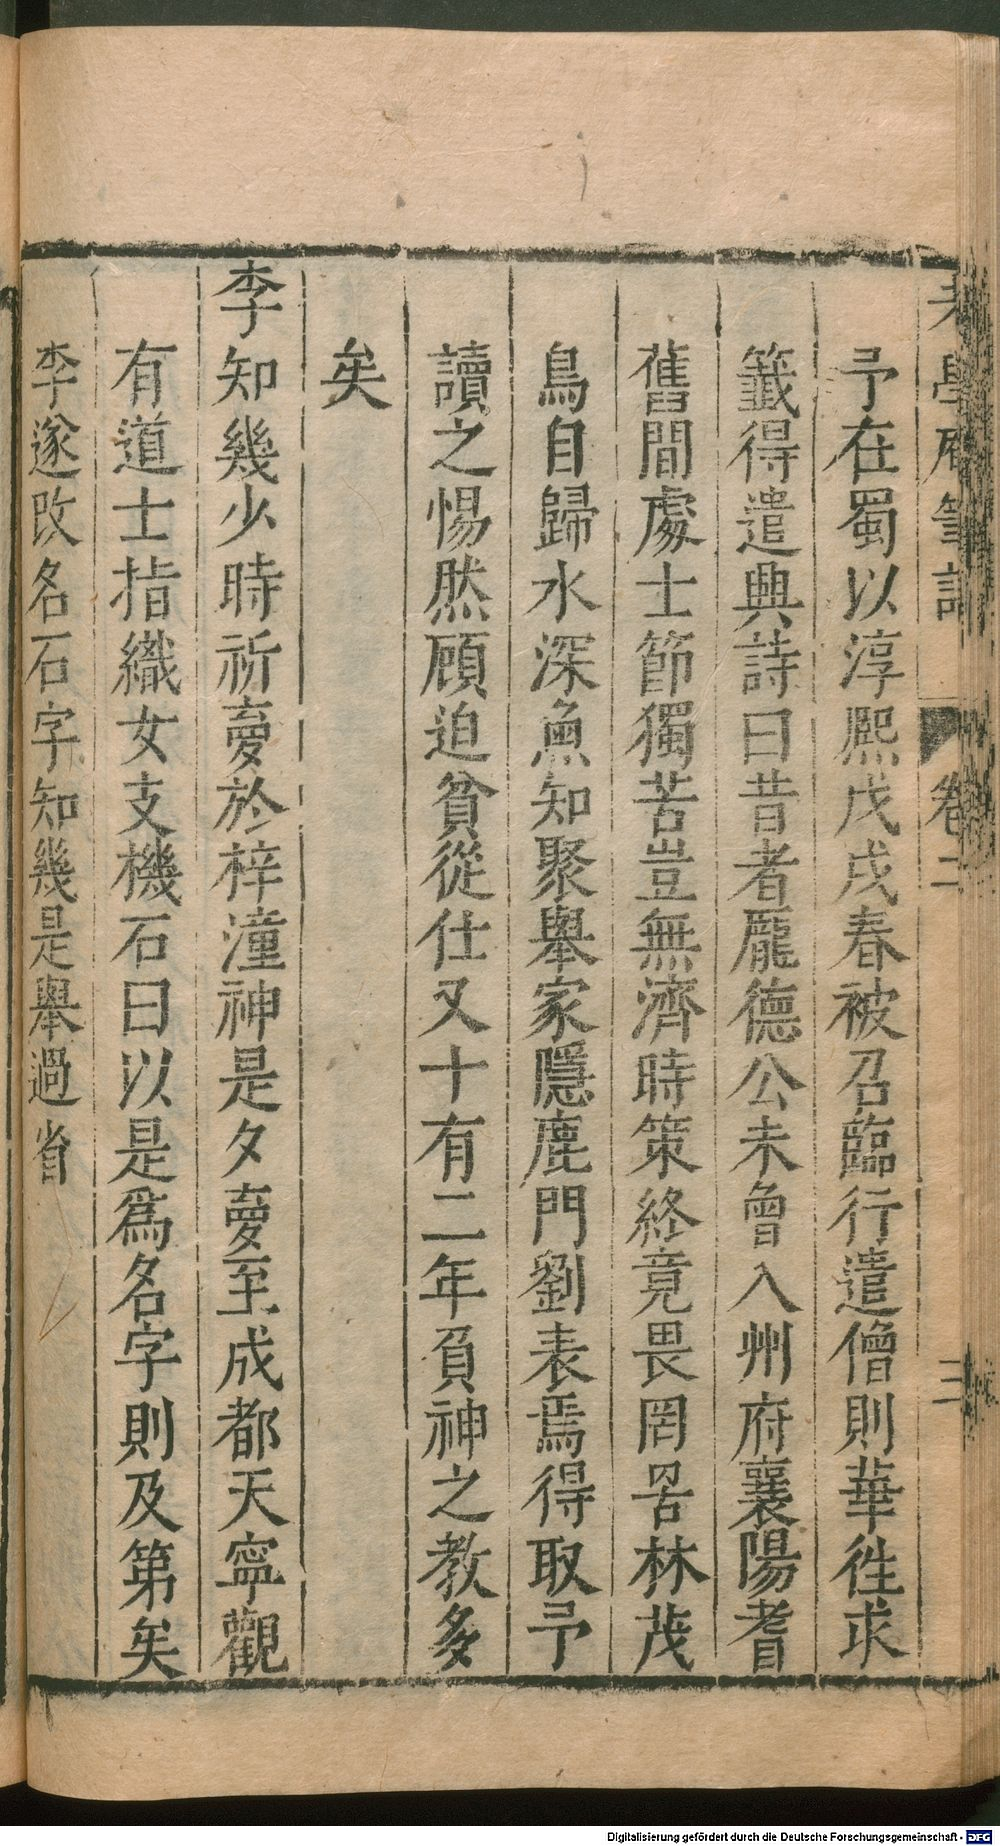 老學庵筆記 卷二 三
予在蜀以淳熙戊戌春被召臨行遣僧則華徃求
籤得遣興詩曰昔者龐德公未曾入州府襄陽耆
舊間處士節獨苦豈無濟時策終竟畏罔罟林茂
鳥自歸水深魚知聚舉家隱鹿門劉表焉得取予
讀之惕然顧迫貧從仕又十有二年負神之教多
矣
李知幾少時祈夣於梓潼神是夕夣至成都天寧觀
有道士指織女支機石曰以是爲名字則及第矣
李遂改名石字知幾是舉過省
Digitalisierung gefördert durch die Deutsche Forschungsgemeinschaft - DFG